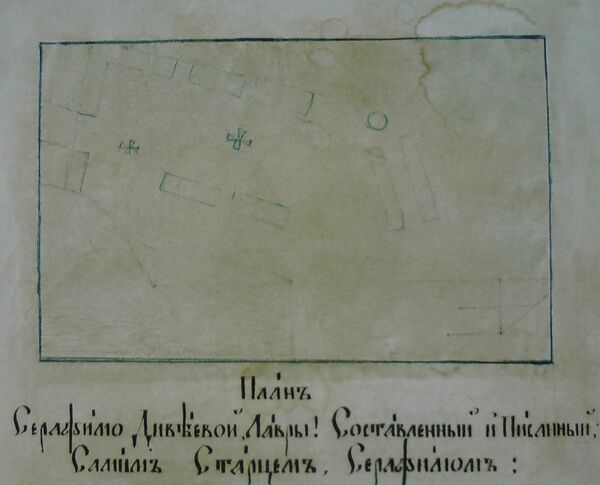 Пла́нъ
Серафи́мо Дивѣ́евой Ла́вры! Соста́вленный и Пи́санный,
Сами́мъ Ста́рцемъ, Серафи́момъ: